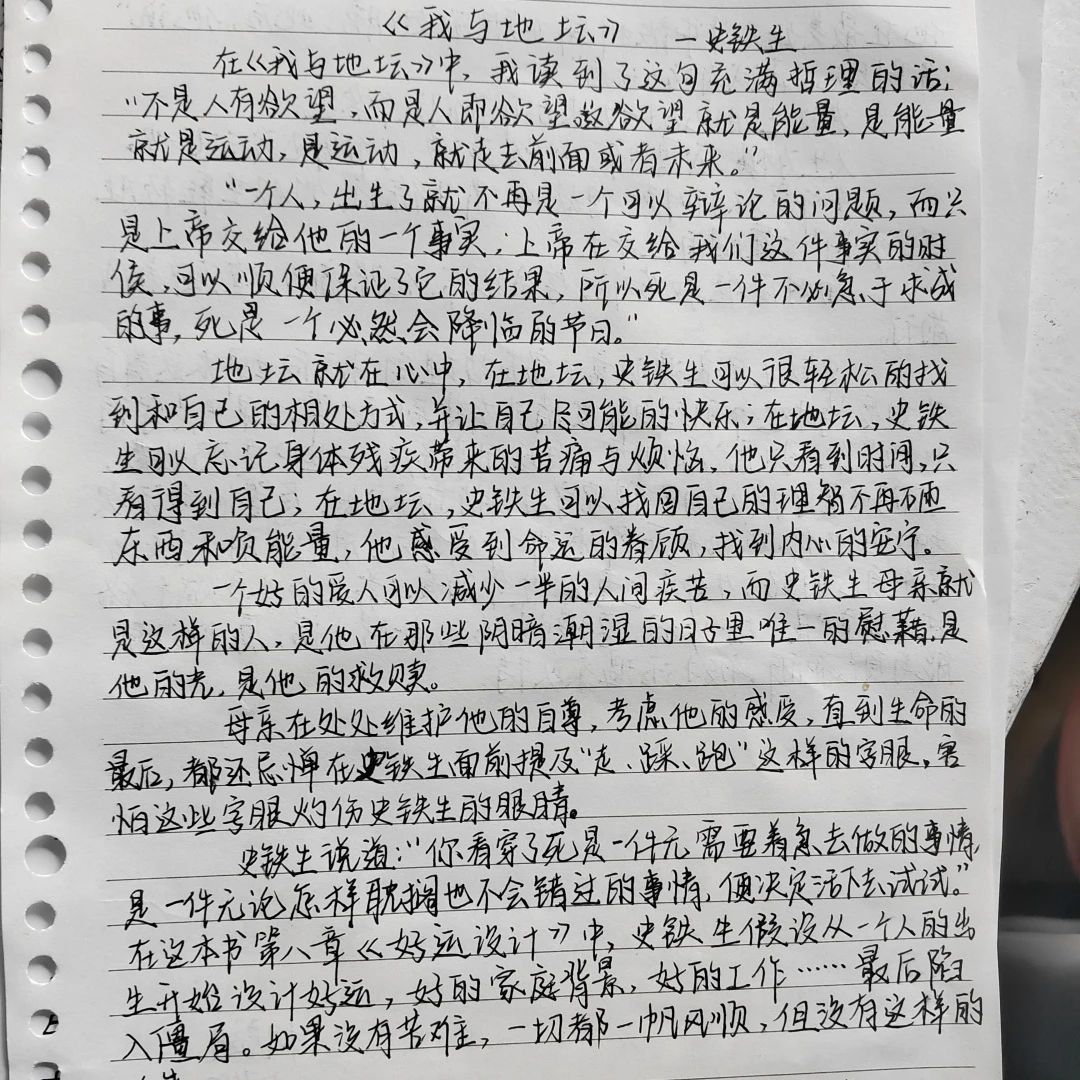 《我与地坛》 —史铁生
在《我与地坛》中，我读到了这句充满哲理的话：
“不是人有欲望，而是人即欲望，欲望就是能量，是能量
就是运动，是运动，就走去前面或者未来。”
“一个人，出生了就不再是一个可以辩论的问题，而只
是上帝交给他的一个事实；上帝在交给我们这件事实的时
侯，可以顺便保证了它的结果，所以死是一件不必急于求成
的事，死是一个必然会降临的节日。”
地坛就在心中，在地坛，史铁生可以很轻松的找
到和自己的相处方式，并让自己尽可能的快乐；在地坛，史铁
生可以忘记身体残疾带来的苦痛与烦恼，他只看到时间，只
看得到自己；在地坛，史铁生可以找回自己的理智不再
东西和负能量，他感受到命运的眷顾，找到内心的安宁。
一个好的爱人可以减少一半的人间疾苦，而史铁生母亲就
是这样的人，是他在那些阴暗潮湿的日子里唯一的慰藉，是
他的光，是他的救赎。
母亲在处处维护他的自尊，考虑他的感受，直到生命的
最后，都还忌惮在史铁生面前提及“走、踩、跑”这样的字眼，害
怕这些字眼灼伤史铁生的眼睛。
史铁生说道：“你看穿了死是一件无需要着急去做的事情，
是一件无论怎样耽搁也不会错过的事情，便决定活下去试试。”
在这本书第八章《好运设计》中，史铁生假设从一个人的出
生开始设计好运，好的家庭背景，好的工作……最后陷
入僵局。如果没有苦难，一切都一帆风顺，但没有这样的